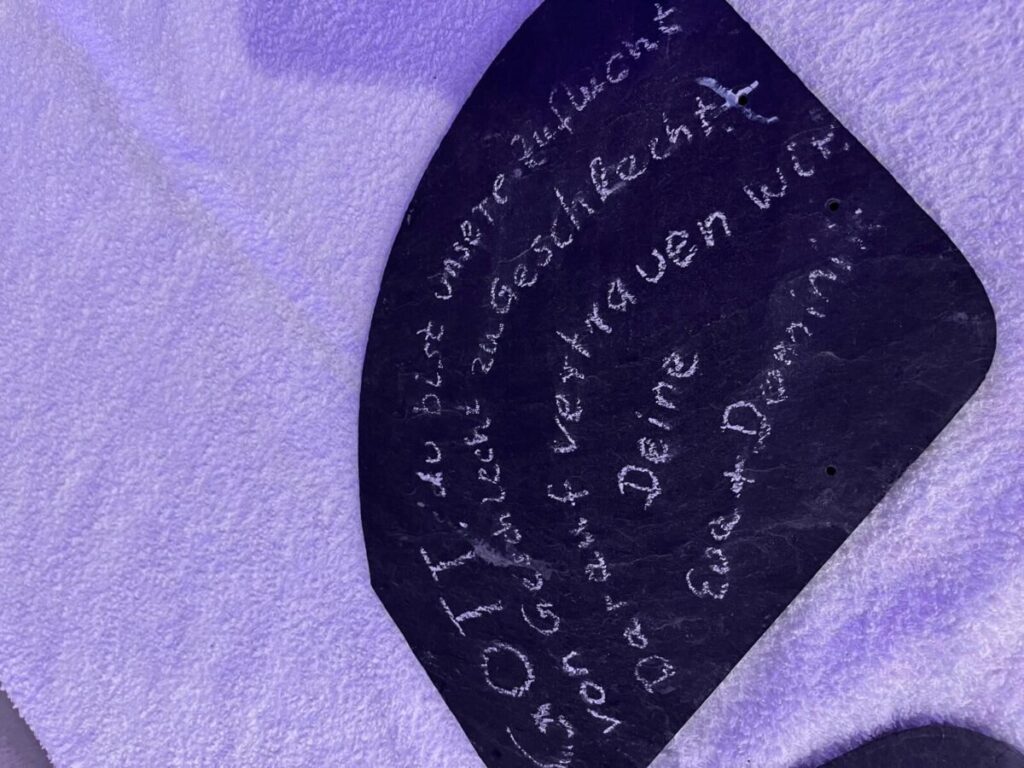 GOTT, du bist unsere Zuflucht
von Geschlecht zu Geschlecht.
Darauf vertrauen wir.
Deine
Eva + Domini